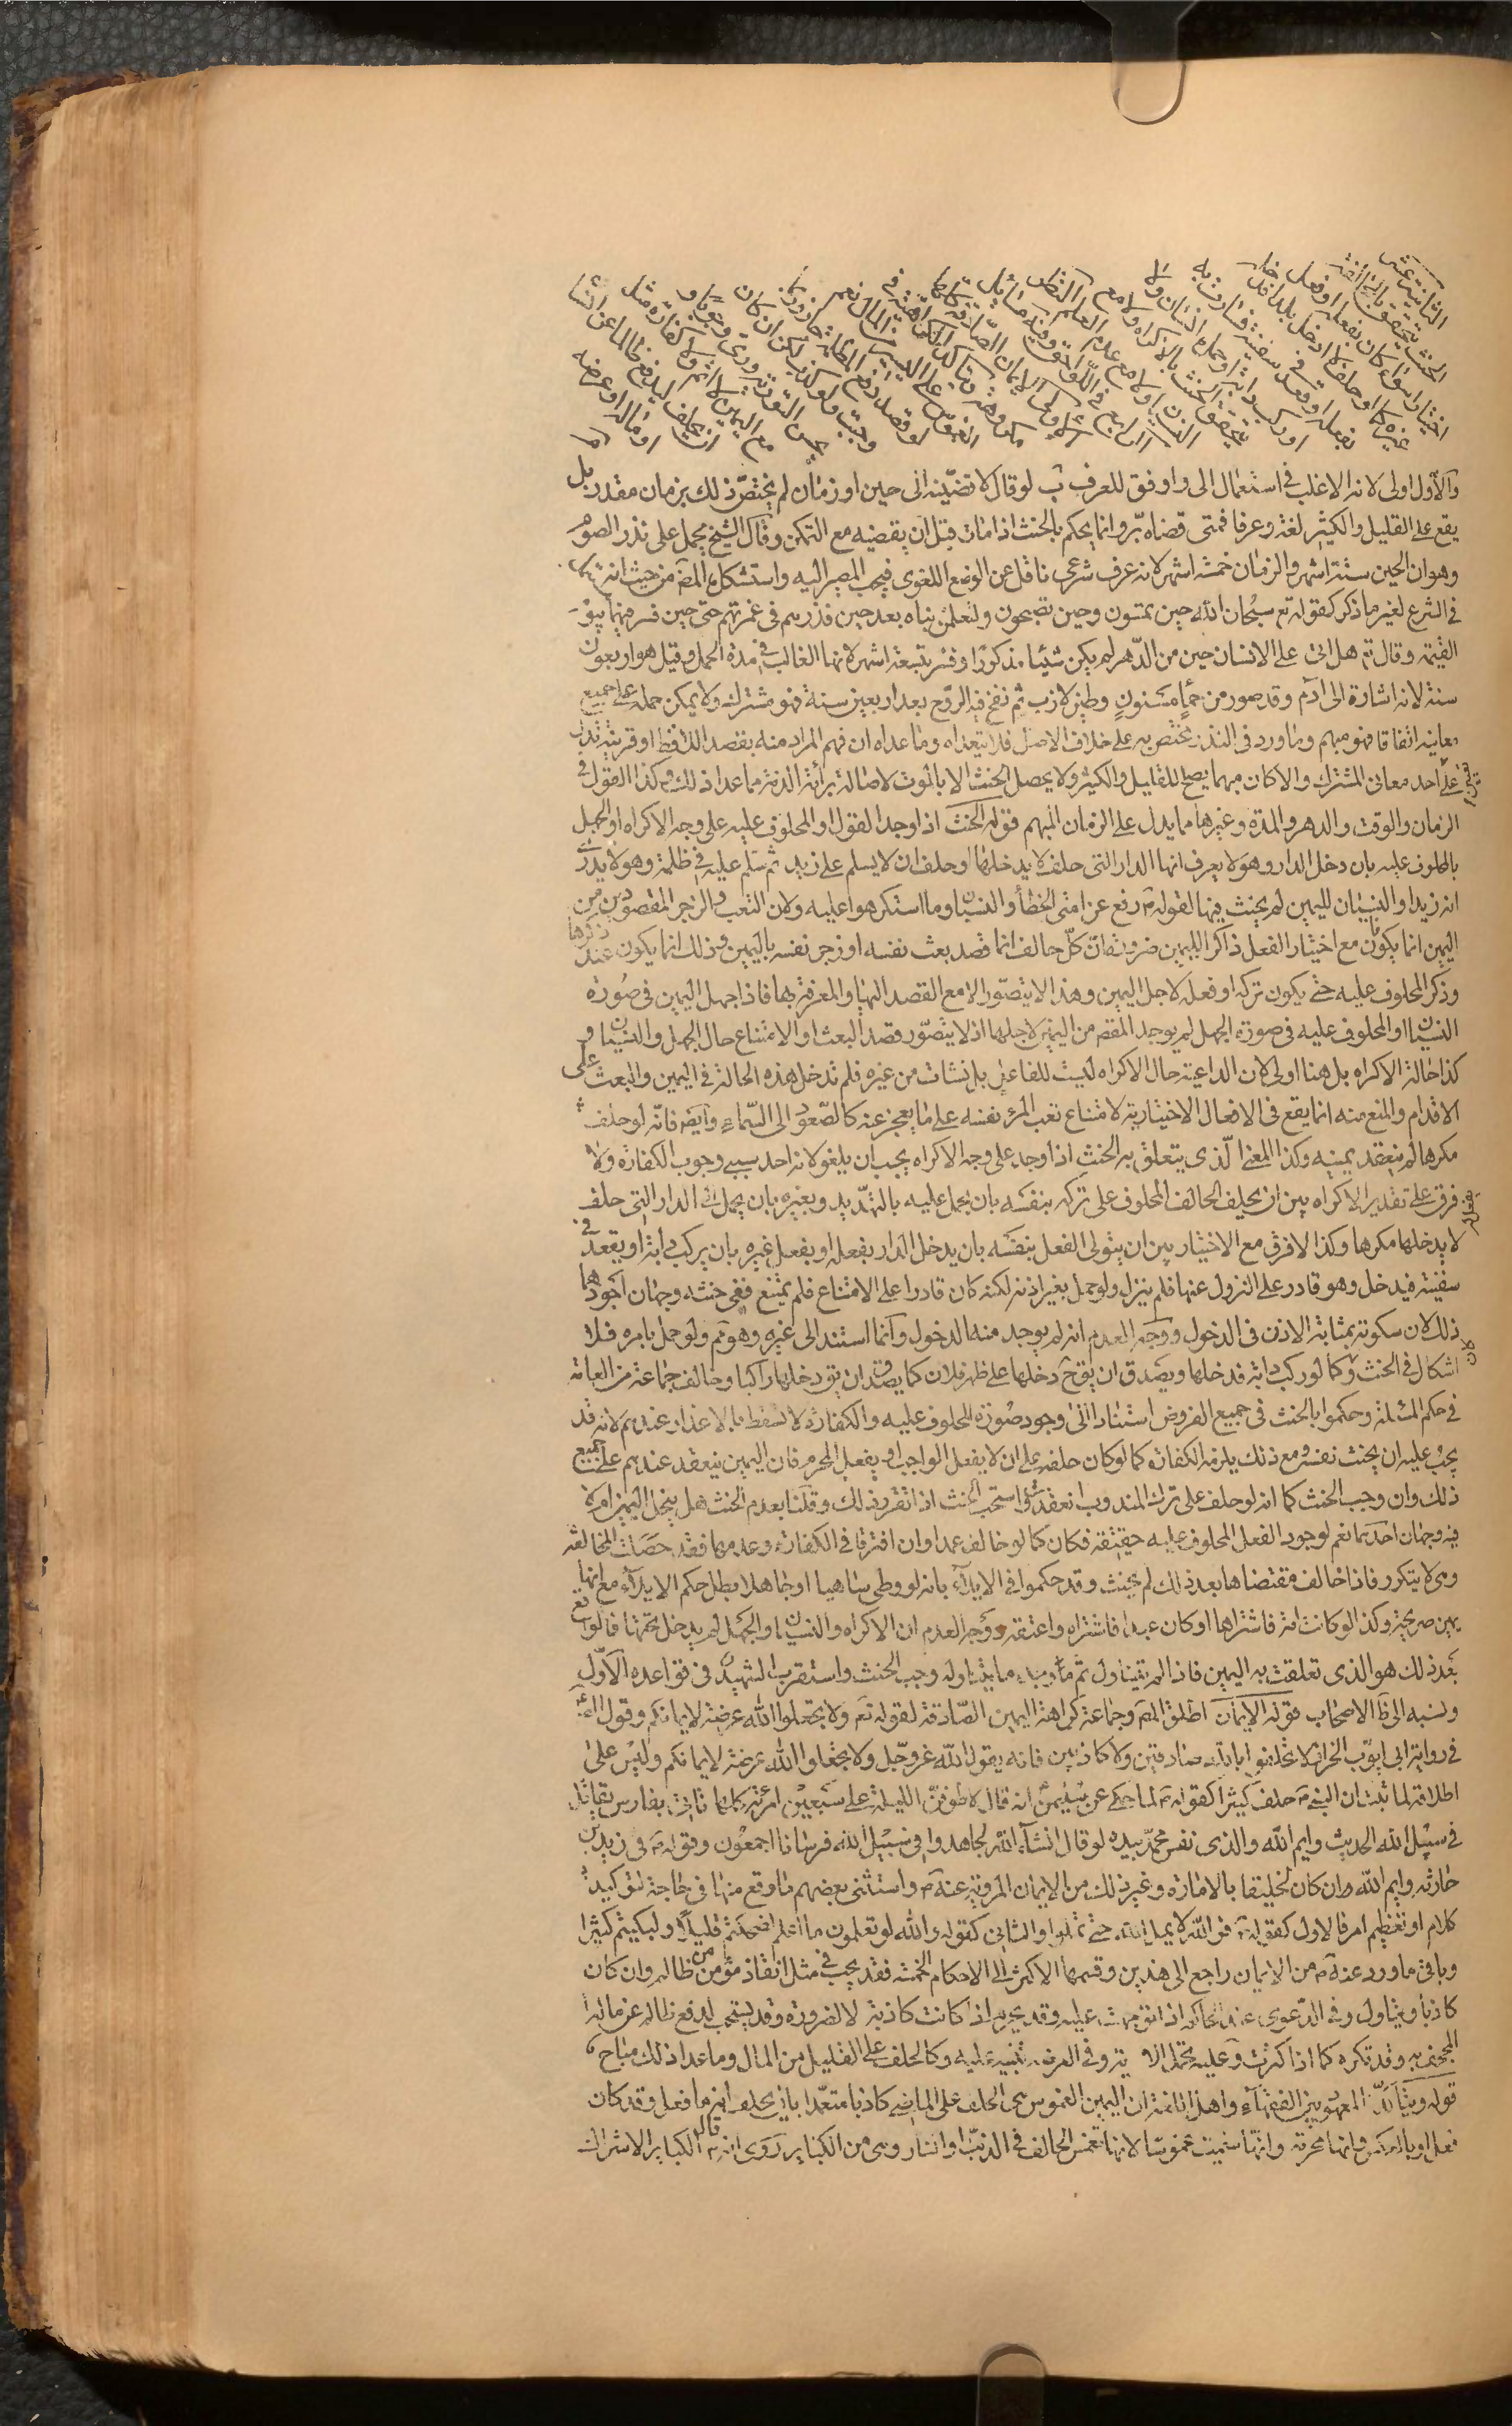 الثانية عشر
الحنث يتحقق بالمخالفة
اختيارا سواء كان بفعله او فعل
غيره كما لو حلف لا ادخل بلدا فدخله
بفعله او قعد في سفينة فسارت به
او ركب دابة او حمله انسان ولا
يتحقق الحنث بالاكراه ولا مع
النسيان ولا مع عدم العلم النظر
الرابع في اللواحق وفيه مسائل
الاولى الايمان الصادقة كلها
مكروهة وتتاكد الكراهية في
الغموس على اليسير من المال نعم
لو قصد دفع المظلمة جاز وربما
وجبت ولو كذب لكن ان كان
يحسن التورية ورى وجوبا و
مع اليمين لا اثم ولا كفارة مثل
ان يحلف ليدفع ظالما عن انسان
او ماله او عرضه
والاول اولى لانه الاغلب في استعمال الى واوفق للعرف ب لو قال لاقضينه الى حين او زمان لم يختص ذلك بزمان مقدر بل
يقع على القليل والكثير لغة وعرفا فمتى قضاه بر وانما يحكم بالحنث اذا مات قبل ان يقضيه مع التمكن وقال الشيخ يحمل على نذر الصوم
وهو ان الحين ستة اشهر والزمان خمسة اشهر لانه عرف شرعي ناقل عن الوضع اللغوي فيجب المصير اليه واستشكله المص من حيث انه
في الشرع لغير ما ذكر كقوله تع سبحان الله حين تمسون وحين تصبحون ولتعلمن نباه بعد حين فذرهم في غمرتهم حتى حين فسر فيها بيوم
القيمة وقال تع هل اتى على الانسان حين من الدهر لم يكن شيئا مذكورا وفسر بتسعة اشهر لانها الغالب في مدة الحمل وقيل هو اربعون
سنة لانه اشارة الى ادم وقد صور من حمإ مسنون وطين لازب ثم نفخ فيه الروح بعد اربعين سنة فهو مشترك ولا يمكن حمله على جميع
معانيه اتفاقا فهو مبهم وما ورد في النذر مختص به على خلاف الاصل فلا يتعداه وما عداه ان فهم المراد منه بقصد اللافظ او قرينة تدل
على احد معاني المشترك والا كان مبهما يصلح للقليل والكثير ولا يحصل الحنث الا بالموت لاصالة برائة الذمة مما عدا ذلك وكذا القول في
الزمان والوقت والدهر والمدة وغيرها مما يدل على الزمان المبهم قوله الحنث اذا وجد القول او المحلوف عليه على وجه الاكراه او الجهل
بالمحلوف عليه بان دخل الدار وهو لا يعرف انها الدار التي حلف لا يدخلها او حلف ان لا يسلم على زيد ثم سلم عليه في ظلمة وهو لا يدري
انه زيد او النسيان لليمين لم يحنث فيها لقوله ص رفع عن امتي الخطأ والنسيان وما استكرهوا عليه ولان البعث والزجر المقصودين من
اليمين انما يكون مع اختيار الفعل ذاكرا لليمين ضرورة ان كل حالف انما قصد بعث نفسه او زجر نفسه باليمين وذلك انما يكون عند ذكرها
وذكر المحلوف عليه حتى يكون تركه او فعله لاجل اليمين وهذا لا يتصور الا مع القصد اليها والمعرفة بها فاذا جهل اليمين في صورة
النسيان او المحلوف عليه في صورة الجهل لم يوجد المقصد من اليمين لاجلها اذ لا يتصور قصد البعث او الامتناع حال الجهل والنسيان و
كذا حالة الاكراه بل هنا اولى لان الداعية حال الاكراه ليست للفاعل بل نشات من غيره فلم تدخل هذه الحالة في اليمين والبعث على
الاقدام والمنع منه انما يقع في الافعال الاختيارية لامتناع بعث المرء نفسه على ما يعجز عنه كالصعود الى السماء وايضا فانه لو حلف
مكرها لم ينعقد يمينه وكذا المعنى الذي يتعلق به الحنث اذا وجد على وجه الاكراه يجب ان يلغو لانه احد سببي وجوب الكفارة ولا
فرق على تقدير الاكراه بين ان يحلف الحالف المحلوف على تركه بنفسه بان يحمل عليه بالتهديد وبغيره بان يحمل الى الدار التي حلف
لا يدخلها مكرها وكذا لا فرق مع الاختيار بين ان يتولى الفعل بنفسه بان يدخل الدار بفعله او بفعل غيره بان يركب دابة او يقعد في
سفينة فيدخل وهو قادر على النزول عنها فلم ينزل ولو حمل بغير اذنه لكنه كان قادرا على الامتناع فلم يمتنع ففي حنثه وجهان اجودهما
ذلك لان سكوته بمثابة الاذن في الدخول ووجه العدم انه لم يوجد منه الدخول وانما استند الى غيره وهو ثم ولو حمل بامره فلا
اشكال في الحنث وكما لو ركب دابة فدخلها ويصدق ان يقال دخلها على ظهر فلان كما يصدق ان يق دخلها راكبا وخالف جماعة من العامة
في حكم المسئلة وحكموا بالحنث في جميع الفروض استنادا الى وجود صورة المحلوف عليه والكفارة لا تسقط بالاعذار عندهم لانه قد
يجب عليه ان يحنث نفسه ومع ذلك يلزمه الكفارة كما لو كان حلفه على ان لا يفعل الواجب او يفعل المحرم فان اليمين ينعقد عندهم على جميع
ذلك وان وجب الحنث كما انه لو حلف على ترك المندوب انعقدت واستحب الحنث اذا تقرر ذلك وقلنا بعدم الحنث هل ينحل اليمين ام لا
فيه وجهان احدهما نعم لوجود الفعل المحلوف عليه حقيقة فكان كما لو خالف عمدا وان افترقا في الكفارة وعدمها فقد حصلت المخالفة
وهي لا يتكرر فاذا خالف مقتضاها بعد ذلك لم يحنث وقد حكموا في الايلاء بانه لو وطى ساهيا او جاهلا بطل حكم الايلاء مع انها
يمين صريحة وكذا لو كانت امة فاشتراها او كان عبدا فاشتراه واعتقه ووجه العدم ان الاكراه والنسيان والجهل لم يدخل تحتها فالواقع
بعد ذلك هو الذي تعلقت به اليمين فاذا لم يتناول ثم ما وجد ما يتناوله وجب الحنث واستقرب الشهيد في قواعده الاول
ونسبه الى ظ الاصحاب قوله الايمان اطلق المص وجماعة كراهة اليمين الصادقة لقوله تع ولا تجعلوا الله عرضة لايمانكم وقول الص
في رواية ابي ايوب الخزاز لا تحلفوا بالله صادقين ولا كاذبين فانه يقول الله عز وجل ولا تجعلوا الله عرضة لايمانكم وليس على
اطلاقه لما ثبت ان النبي ص حلف كثيرا كقوله ص لما حكى عن سليمن انه قال لاطوفن الليلة على سبعين امرئة كلها تاتي بفارس يقاتل
في سبيل الله الحديث وايم الله والذي نفس محمد بيده لو قال انشاء الله لجاهدوا في سبيل الله فرسانا اجمعون وقوله ص في زيد بن
حارثه وايم الله وان كان لخليقا بالامارة وغير ذلك من الايمان المروية عنه ص واستثنى بعضهم ما وقع منها في حاجة لتوكيد
كلام او تعظيم امر فالاول كقوله ص فو الله لا يمل الله حتى تملوا والثاني كقوله والله لو تعلمون ما اعلم لضحكتم قليلا ولبكيتم كثيرا
وباقي ما ورد عنه ص من الايمان راجع الى هذين وقسمها الاكثر الى الاحكام الخمسة فقد يجب في مثل انقاذ مؤمن من ظالم وان كان
كاذبا ويتاول وفي الدعوى عند الحاكم اذا توجهت عليه وقد يحرم اذا كانت كاذبة لا لضرورة وقد يستحب لدفع ظالم عن ماله
المجحف به وقد تكره كما اذا كثرت وعليه يحمل الاية وفي العرضة تنبيه عليه وكالحلف على القليل من المال وما عدا ذلك مباح
قوله ويتاكد المعهود بين الفقهاء واهل اللغة ان اليمين الغموس هي الحلف على الماضي كاذبا متعمدا بان يحلف انه ما فعل وقد كان
فعل او بالعكس وانها محرمة وانما سميت غموسا لانها تغمس الحالف في الذنب او النار وهي من الكبائر روى انه ص قال الكبائر الاشراك